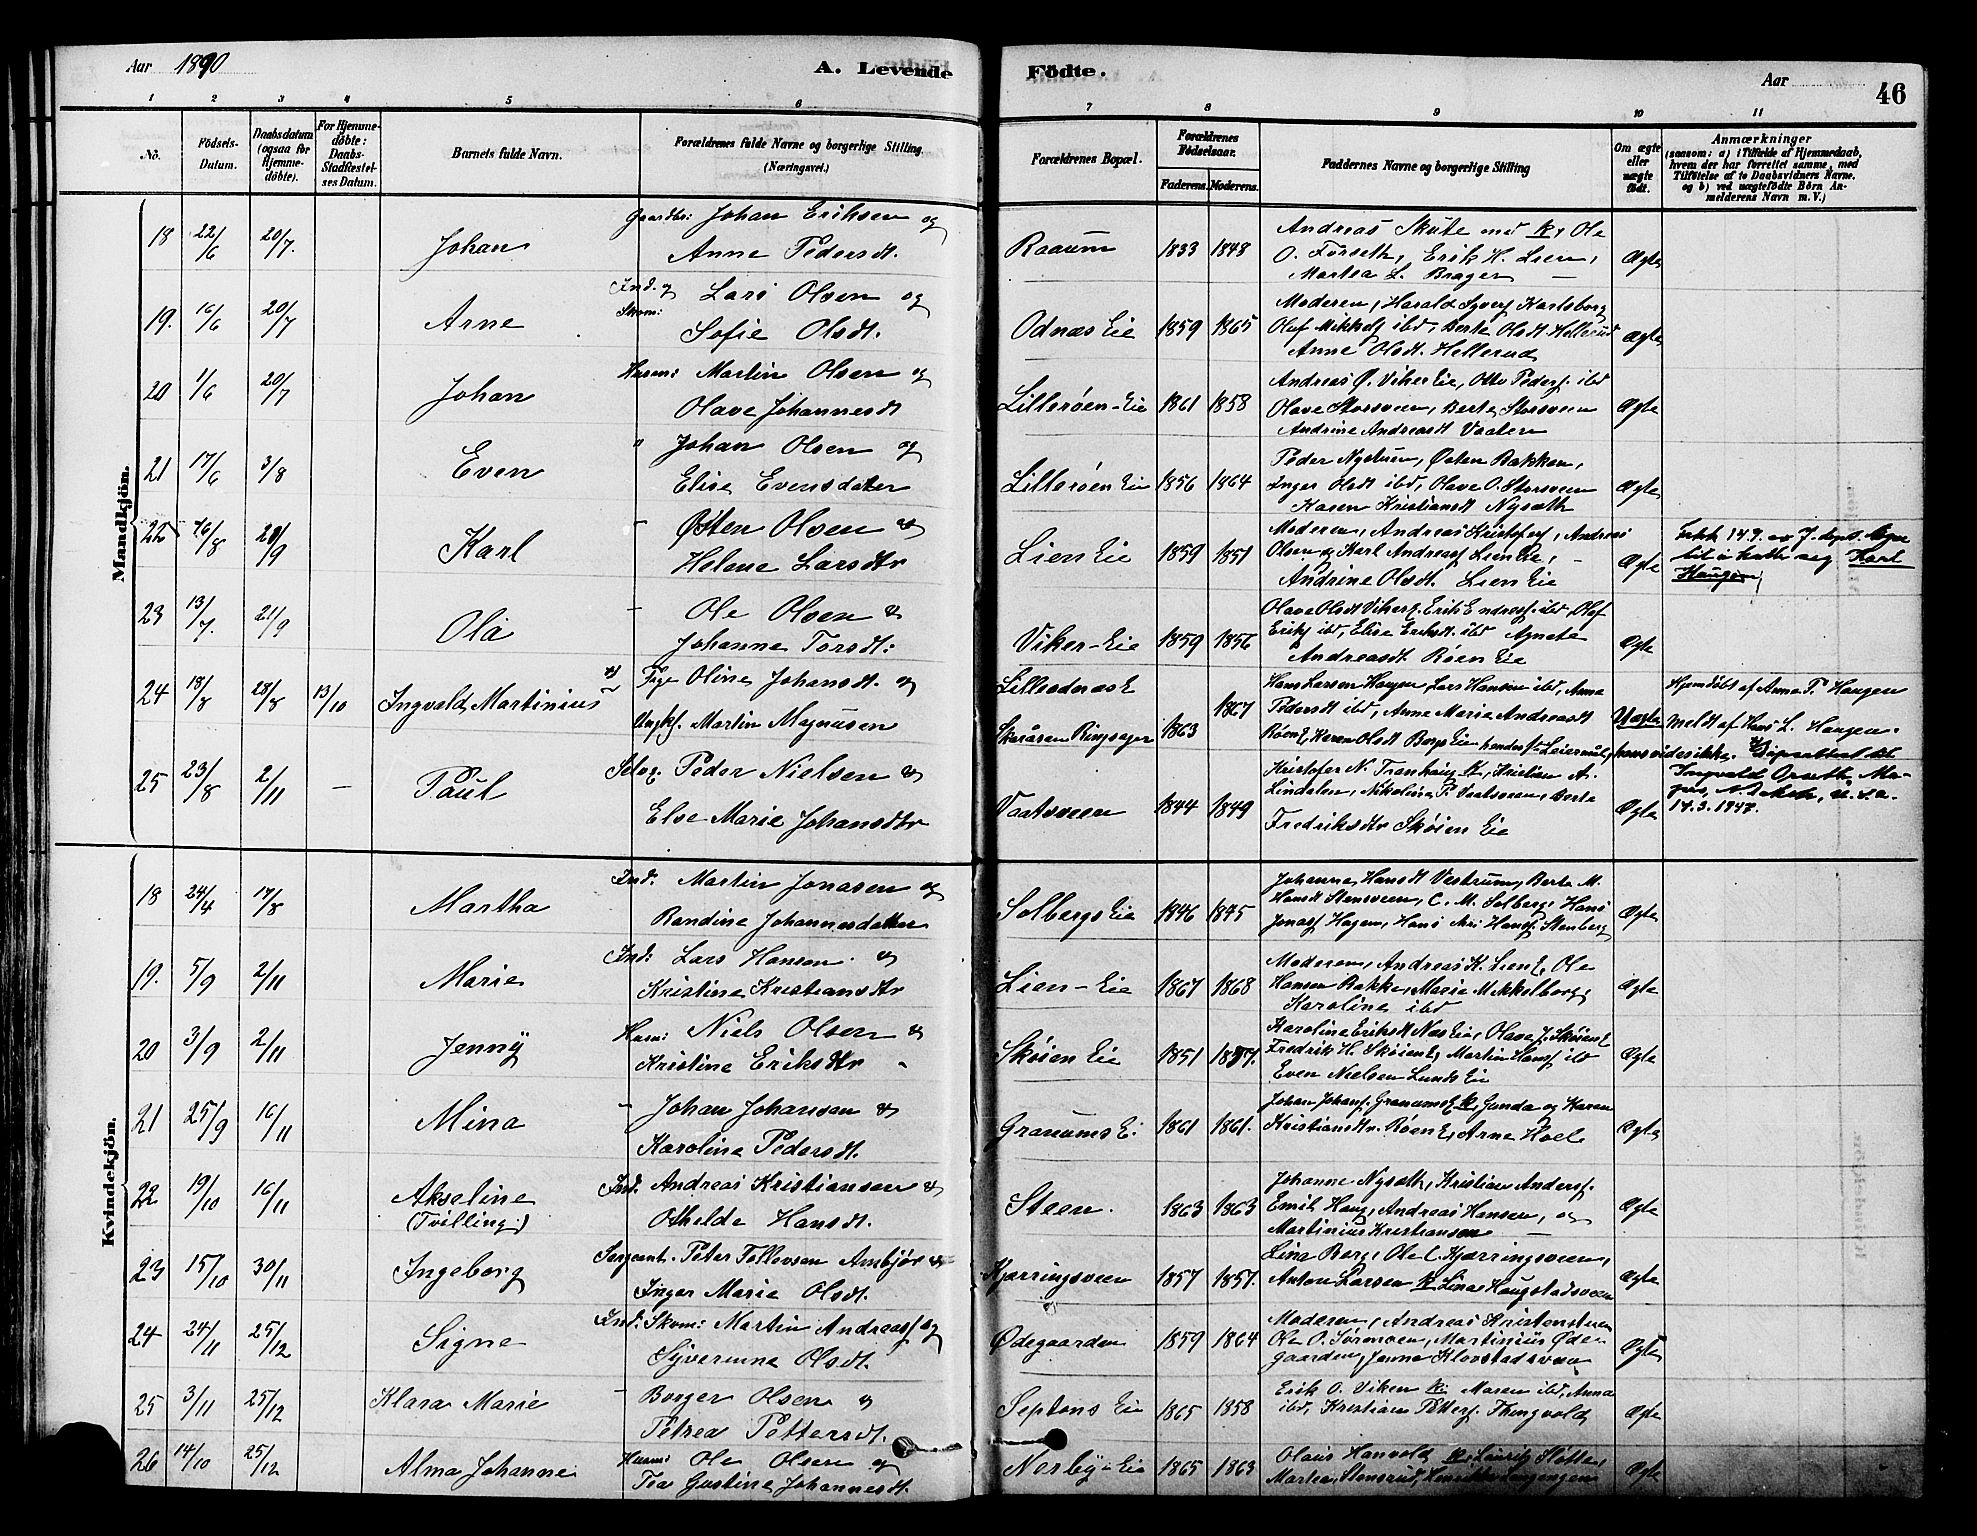 Aar 1890
A. Levende
Födte.
Aar
46
1 2 3 4 5 6 7 8 9 10 11
No.
Födsels-
Datum.
Daabsdatum
(ogsaa for
Hjemme-
döbte).
For Hjemme-
döbte:
Daabs-
Stadfæstel-
ses Datum.
Barnets fulde Navn.
Forældrenes fulde Navne og borgerlige Stilling.
(Næringsvei.)
Forældrenes Bopæl.
Forældrenes
Födselsaar.
Faderens. Moderens.
Faddernes Navne og borgerlige Stilling
Om ægte
eller
uægte
født.
Anmærkninger
(saasom: a) i Tilfælde af Hjemmedaab,
hvem der har forrettet samme, med
Tilføielse af to Daabsvidners Navne.
og b) ved uægtefødte Börn An-
melderens Navn m. V.)
Mandkjön.
18 22/6 20/7. Johan
Gaardbr: Johan Eriksen og
Anne Pedersdt.
Raaum 1833 1848
Andreas Skute med K, Ole
O. Forseth, Erik H. Lien,
Martea L. Brager
Ægte
19. 16/6 20/7 Arne
Ind. og Skom: Lars Olsen og
Sofie Olsdt.
Odnæs Eie 1859 1865
Moderen, Harald Syvers Karlsborg
Oluf Mikkels ibd, Berte Olsdt. Hellerud
Anne Olsdt. Hellerud
Ægte
20 1/6 20/7 Johan
Husm: Martin Olsen og
Olave Johannesdt
Lillerøen-Eie 1861 1858
Andreas Ø. Viker Eie, Otto Peders. ibd
Olave Storsveen, Berte Storsveen
Andrine Andreasdt Vaaten
Ægte
21 17/6 3/8 Even
" Johan Olsen og
Elise Evensdater
Lillerøen Eie 1856 1864
Peder Nystuen, Østen Bakken,
Inger Olsdt ibd, Olave O. Storsveen
Karen Kristiansdt Nysæth
Ægte
22 16/8 21/9 Karl
- Østen Olsen &
Helene Larsdtr
Lien Eie 1859 1851
Moderen, Andreas Kristofers, Andreas
Olsen og Karl Andreass Lien Eie,
Andrine Olsdt. Lien Eie
Ægte
149. av 7. sept.
til å kalle seg Karl
Haugen,
23 13/7. 21/9 Ola
- Ole Olsen &
Johanne Torsdt:
Viker-Eie 1859 1856
Olave Olsdt Viker, Erik Endress. ibd, Olaf
Eriks ibd, Elise Eriksdt. ibd Agnete
Andreasdt Røen Eie
Ægte
24 18/8 28/8 13/10 Ingvald Martinius
Pige Oline Johansdt. og
Ungkf. Martin Magnusen
Lilleodnæs E
Skaråsen Ringsager 1863 1867
Hans Larsen Haugen, Lars Hansen ibd, Anna
Pedersdt ibd, Anne Marie Andreasdt
Røen E, Karen Olsdt Bergs Eie
Uægte
Hjemdøbt af Anna P. Haugen
meldt af Hans L. Haugen.
Ingvald Opseth
14.3.1947.
25 23/8 2/11 - Paul
Selvg. Peder Nielsen &
Else Marie Johansdtr
Vaatsveen 1844 1849
Kristofer N. Tranhaug K, Kristian A.
Lindalen, Nikoline P. Vaatsveen, Berte
Fredriksdtr Skøien Eie
Ægte
Kvindekjön.
18 24/4 17/8 Martha
Ind. Martin Jonasen og
Randine Johannesdatter
Solbergs Eie 1846 1845
Johanne Hansdt Vestrum, Berte M.
Hansdt Stensveen, C. M. Solberg, Hans
Jonass Hagen, Hans Hanss. Stenberg
Ægte
19. 5/9 2/11 Marie
Ind: Lars Hansen &
Kristine Kristiansdtr
Lien-Eie 1867 1868
Moderen, Andreas K. Lien E, Ole
Hansen Bakke, Marie Mikkelborg,
Karoline ibd
Ægte
20 3/9 2/11 Jenny
Husm: Niels Olsen &
Kristine Eriksdtr
Skøien Eie 1851 1857.
Karoline Eriksdt Næs Eie, Olave J. Skøien E
Fredrik H. Skøien E, Martin Hanss ibd
Even Nielsen Lunds Eie
Ægte
21 25/9 16/11 Mina
- Johan Johansen &
Karoline Pedersdt.
Granums Ei 1861 1861.
Johan Johans. Granums E K, Gunda og Karen
Kristiansdtr. Røen E, Arne Hoel
Ægte
22 19/10 16/11 Akseline
(Tvilling.)
Ind. Andreas Kristiansen &
Othelde Hansdt.
Steen. 1863 1863
Johanne Nysæth, Kristian Anders.
Emil Haug, Andreas Hansen, og
Martinius Kristiansen
Ægte
23 15/10 30/11 Ingeborg
Sergeant. Peter Tollevsen Ambjør &
Inger Marie Olsdt.
Kjærringsveen 1857 1857.
Lina Berg, Ole C. Kjærringsveen,
Anton Larsen K Lina Haugstadsveen
Ægte
24 24/11 25/12 Signe
Ind. Skom: Martin Andreass og
Syverinne Olsdt.
Ødegaarden 1859 1864
Moderen, Andreas Kristensteen
Ole O. Sørmoen, Martinius Øde-
gaarden, Janna Klovstadsveen
Ægte
25 3/11 25/12 Klara Marie
- Borger Olsen og
Petrea Pettersdt.
Septons Eie 1865 1858
Erik O. Viken K. Maren ibd, Anna
ibd, Kristian Petters. Thingvold
Ægte
26 14/10 25/12 Alma Johanne
Husm: Ole Olsen og
Tea Gustine Johannesdt.
Nerby-Eie 1865 1863
Olaus Hanvold K, Lauritz Slotte,
Martea Stensrud,
Ægte